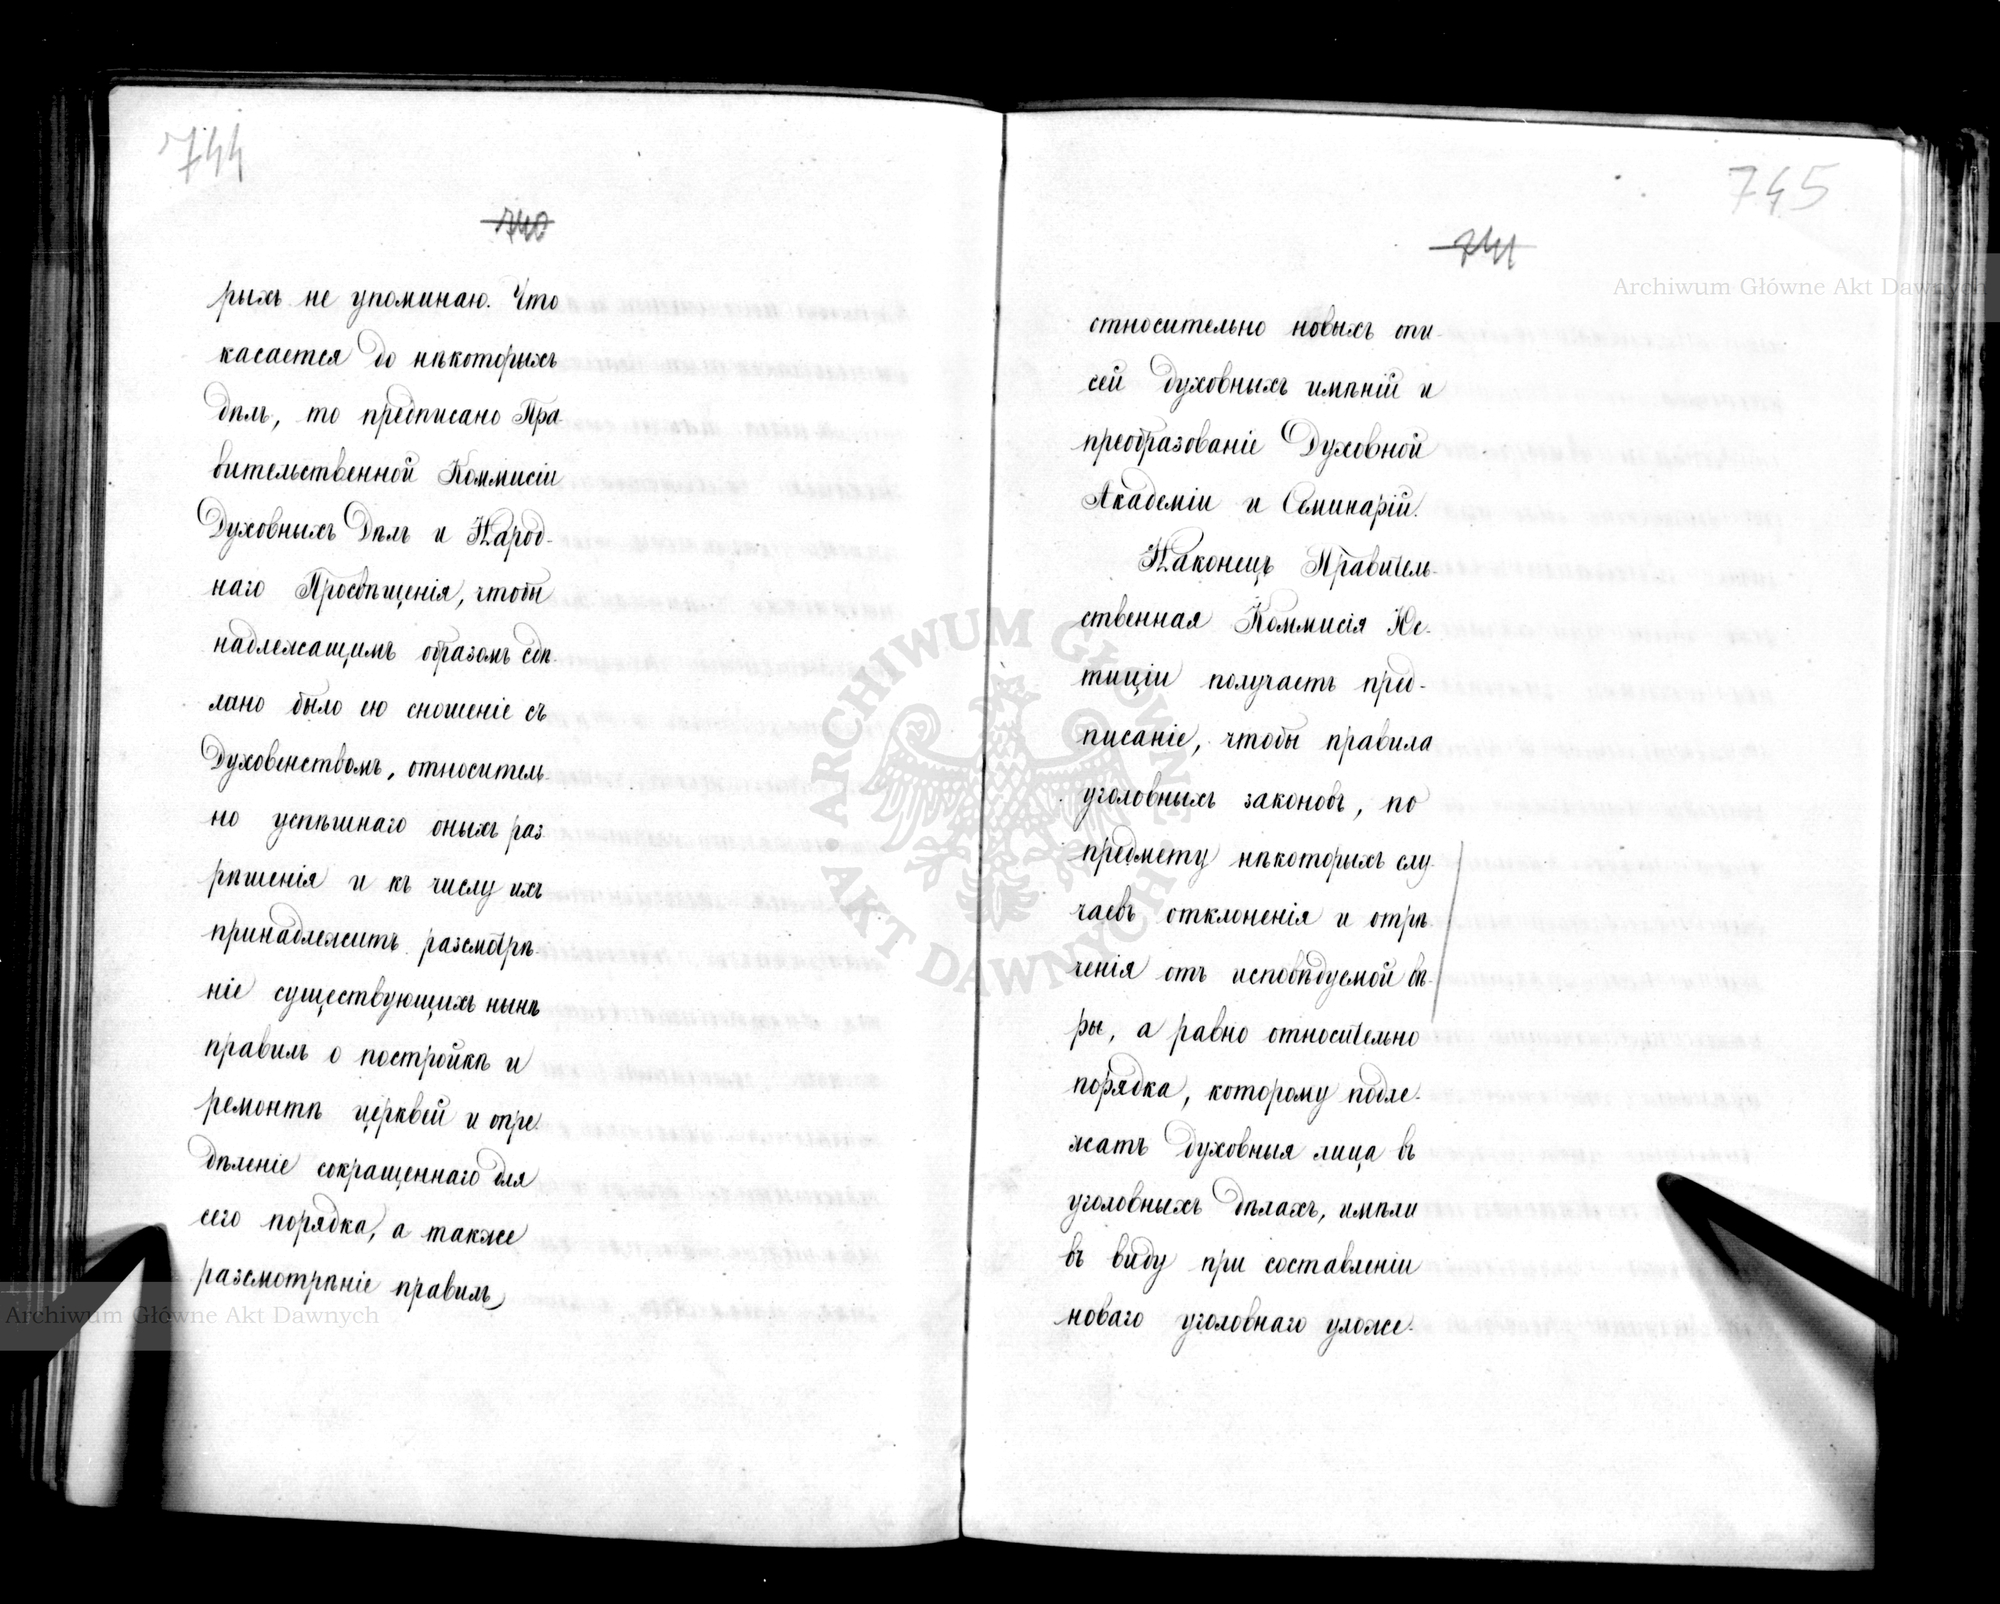 744
740
рыхъ не упоминаю. Что
касается до нѣкоторыхъ
дѣлъ, то предписано Пра
вительственной Коммисіи
Духовныхъ Дѣлъ и Народ-
наго Просвѣщенія, чтобы
надлежащимъ образомъ сдѣ-
лано было ею сношеніе съ
Духовенствомъ, относитель-
но успѣшнаго оныхъ раз
рѣшенія и къ числу ихъ
принадлежитъ разсмотрѣ-
ніе существующихъ нынѣ
правилъ о постройкѣ и
ремонтѣ церквей и опре-
дѣленіе сокращеннаго для
сего порядка, а также
разсмотрѣніе правилъ
745
741
относительно новыхъ опи-
сей духовныхъ имѣній и
преобразованіе Духовной
Академіи и Семинарій.
Наконецъ Правитель-
ственная Коммисія Юс-
тиціи получаетъ пред-
писаніе, чтобы правила
уголовныхъ законовъ, по
предмету нѣкоторыхъ слу-
чаевъ отклоненія и отрѣ-
ченія отъ исповѣдуемой вѣ-
ры, а равно относительно
порядка, которому подле-
жатъ духовныя лица въ
уголовныхъ дѣлахъ, имѣли
въ виду при составленіи
новаго уголовнаго уложе-
Archiwum Główne Akt Dawnych
Archiwum Główne Akt Dawnych
ARCHIWUM GŁÓWNE AKT DAWNYCH